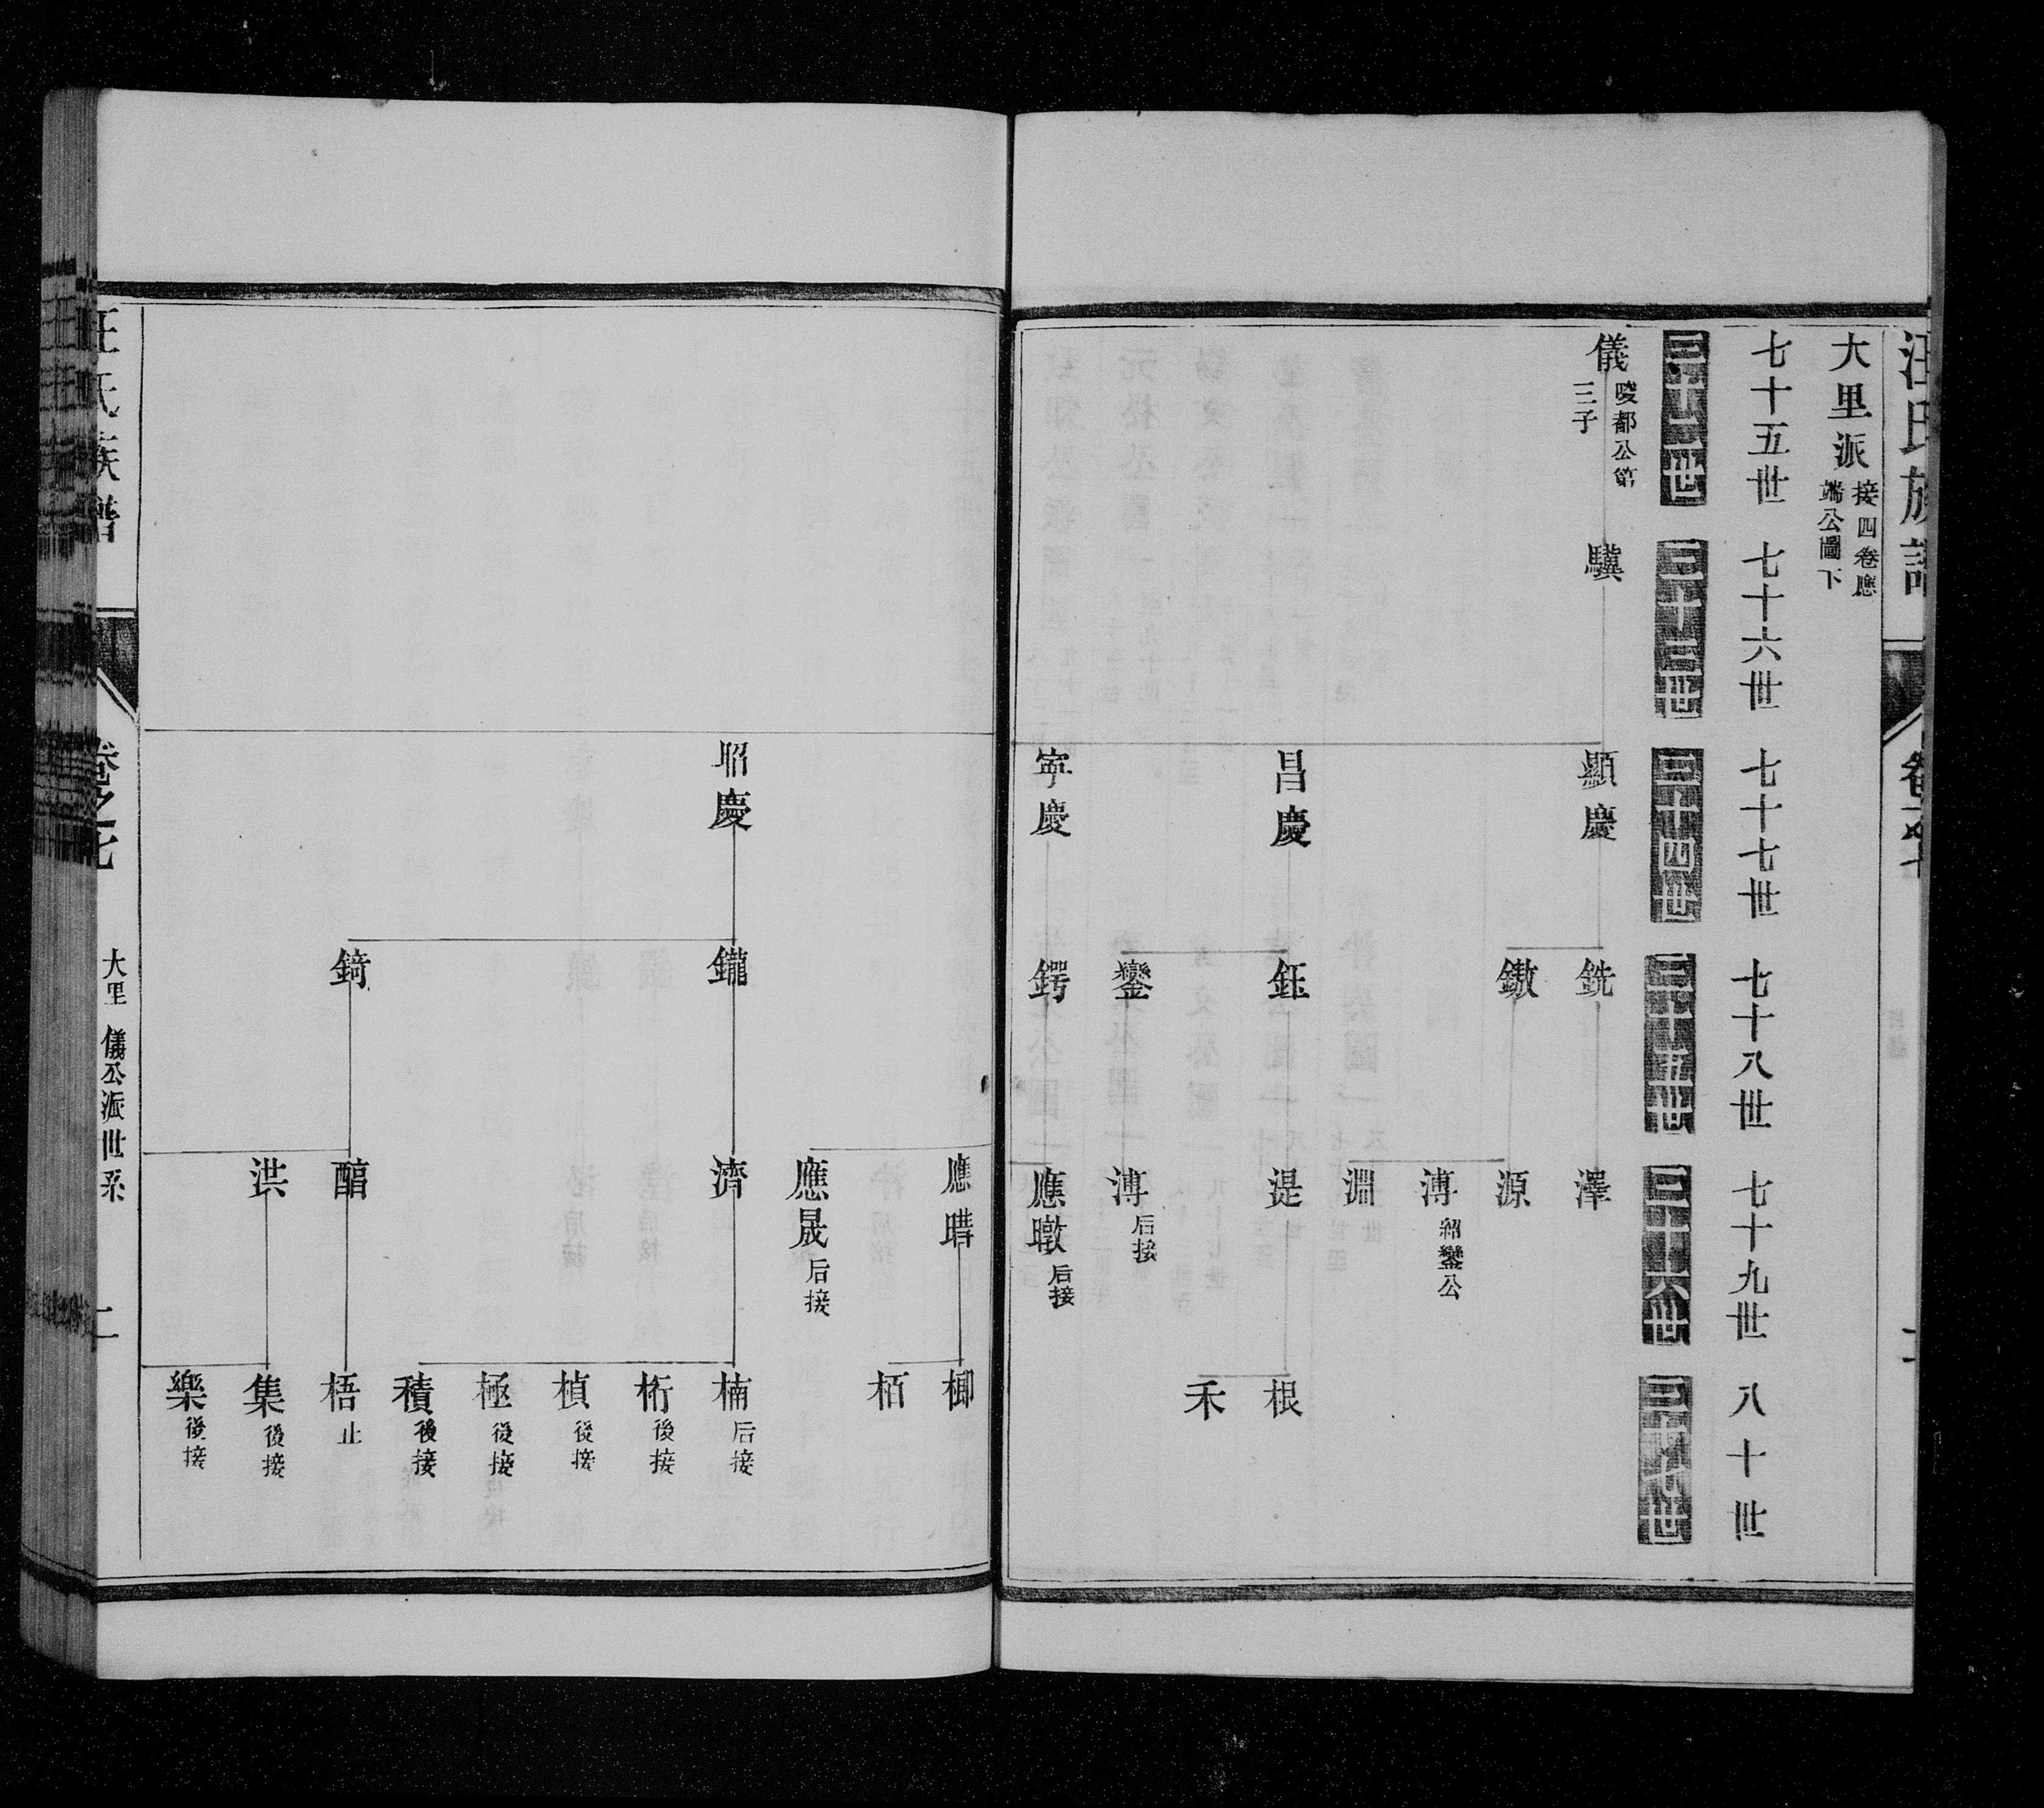 汪氏族譜
卷之七
大里派 接四卷應端公圖下
七十五世 七十六世 七十七世 七十八世 七十九世 八十世
三十二世 三十三世 三十四世 三十五世 三十六世 三十七世
儀 畯都公第三子
驥
顯慶 昌慶 寧慶
銑 鏾 鈺 鑾 鍔
澤 源 溥 紹鑾公 淵 湜 溥 后接 應暾 后接
根 禾
昭慶
鑨 錡
應暳 應晟 后接 濟 醕 洪
栁 栢 楠 后接 桁 後接 楨 後接 極 後接 積 後接 梧 止 集 後接 樂 後接
汪氏族譜
卷之七
大里 儀公派世系
二